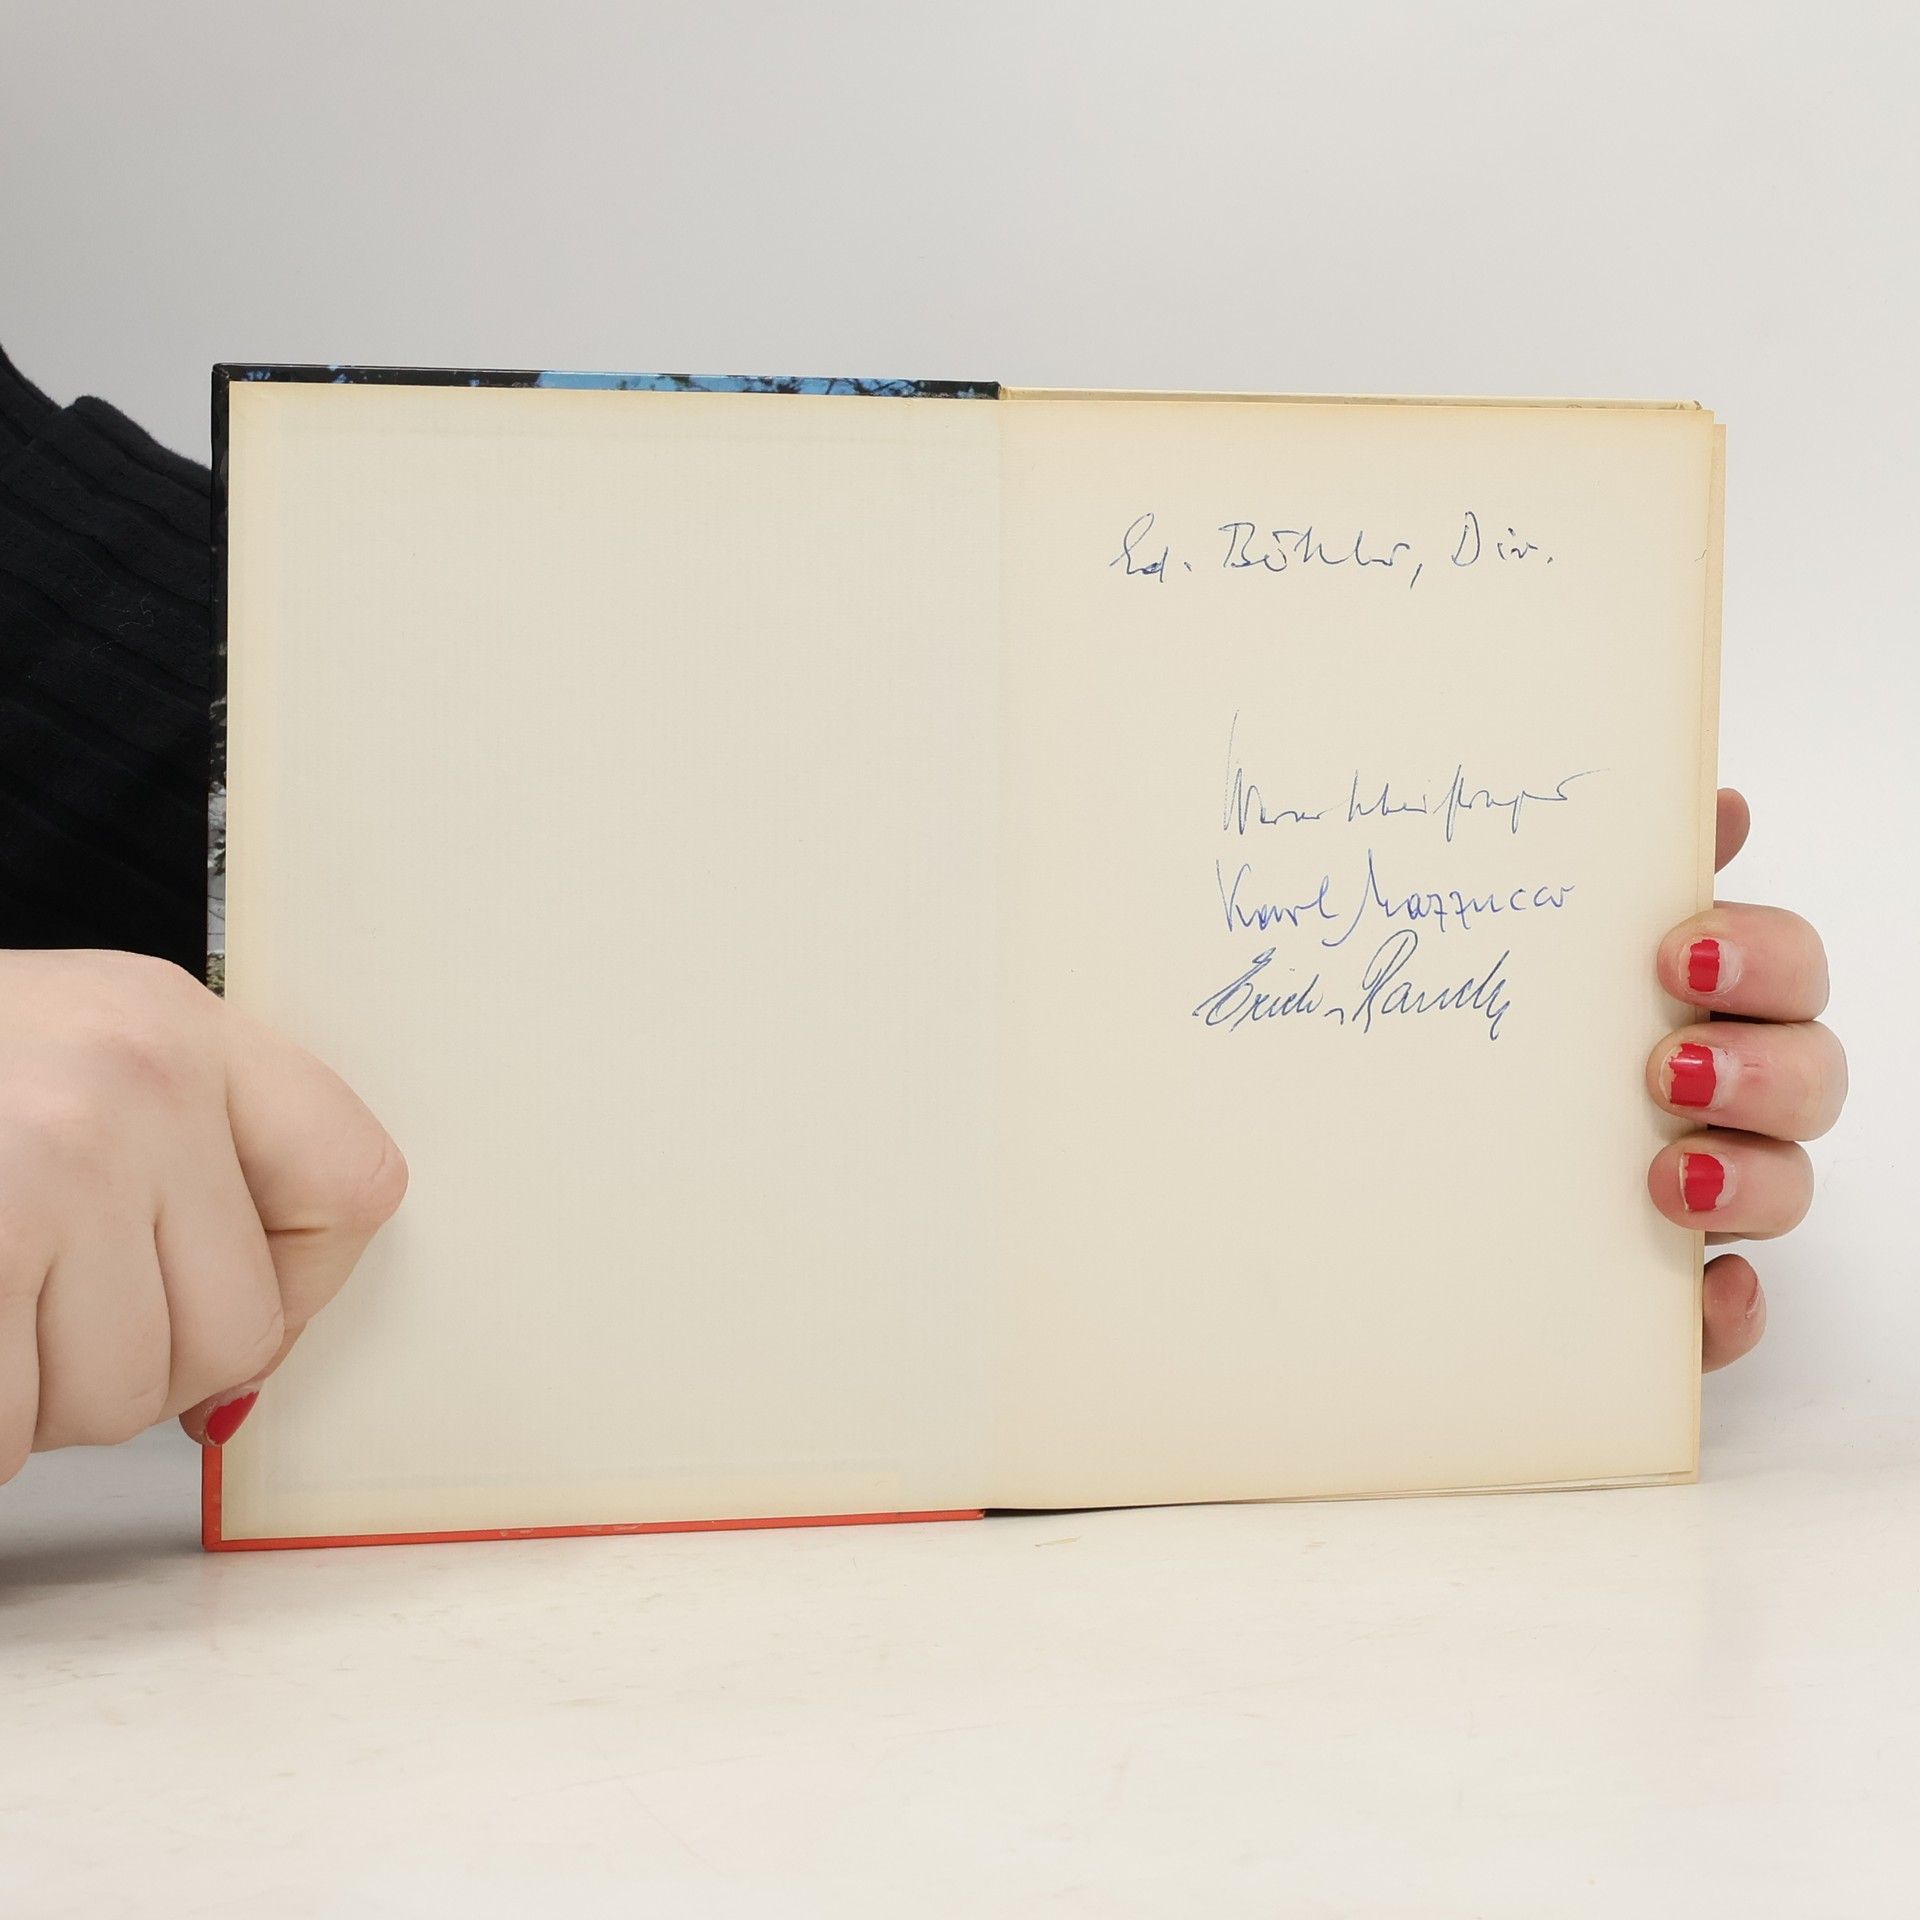 Ed. Böhler, Dir.
Werner
Karl Mazzucco
Erich Rauch